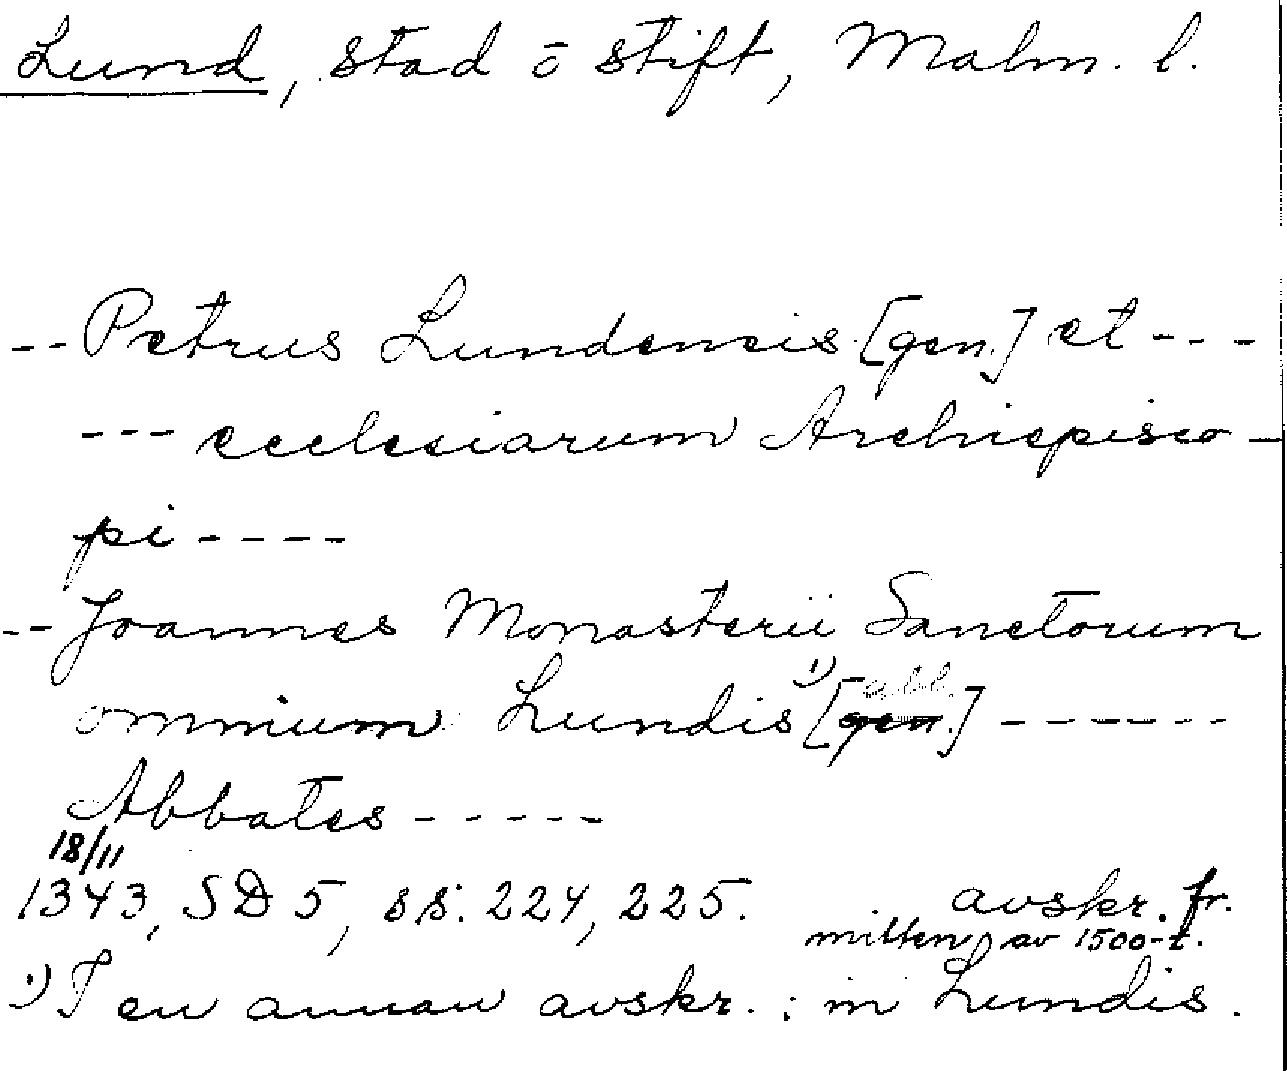 Lund, stad ō stift, Malm. l.
-- Petrus Lundensis [gen.] et ---
--- ecclesiarum Archiepisco-
pi ----
-- Joannes Monasterii Sanctorum
omnium Lundis ¹) [gen. abl.] ------
Abbates -----
18/11
1343, SD 5, ss. 224, 225. avskr. fr.
mitten av 1500-t.
¹) I en annan avskr.: in Lundis.